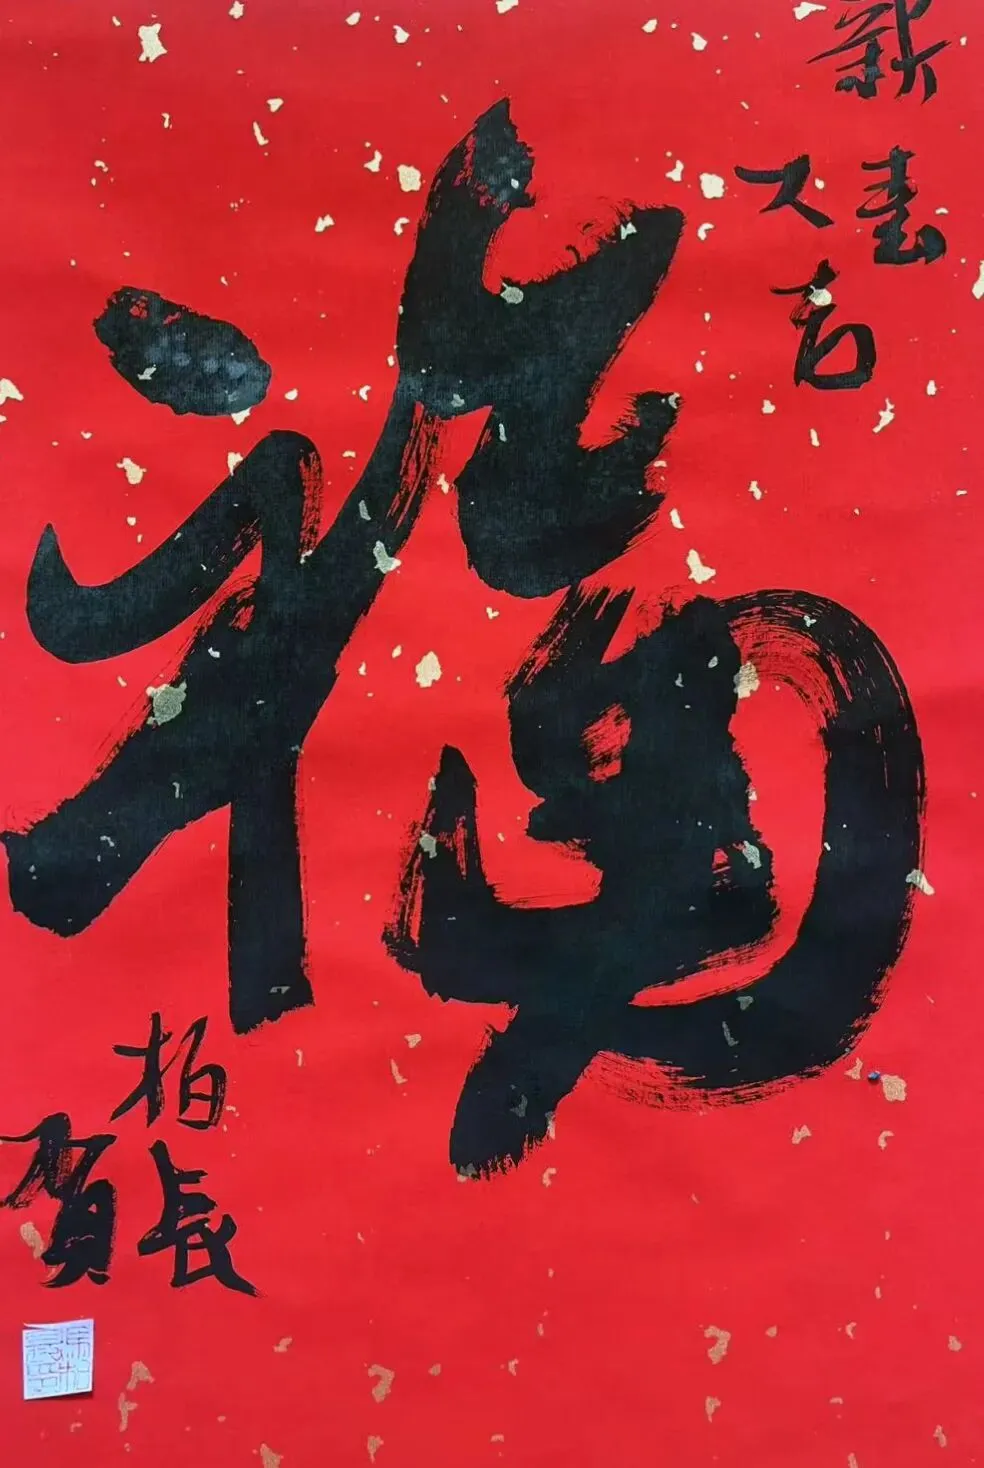 新春
大吉
福
柏長
賀